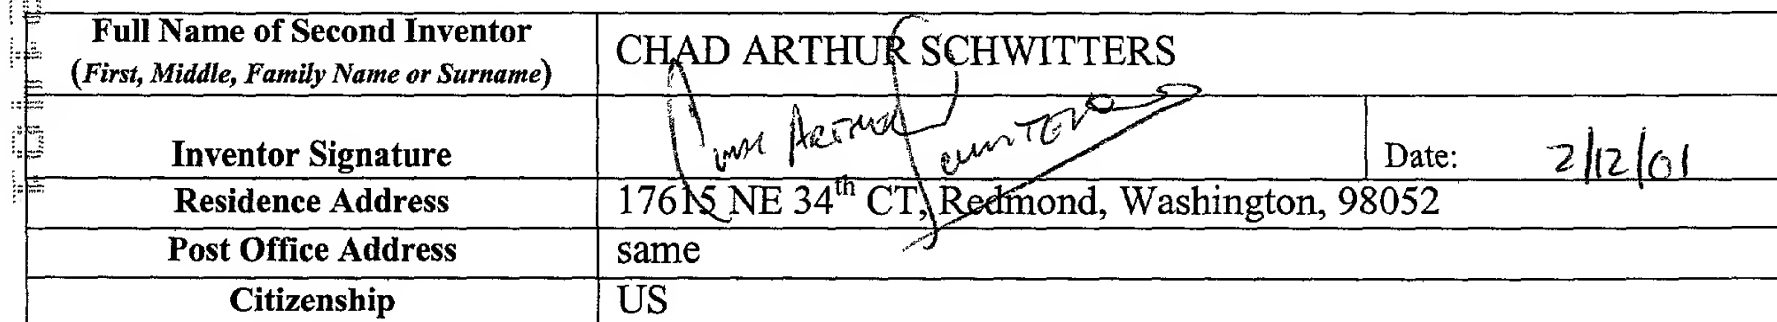 Full Name of Second Inventor
(First, Middle, Family Name or Surname)
CHAD ARTHUR SCHWITTERS
Inventor Signature
Date: 2/12/01
Residence Address
17615 NE 34th CT, Redmond, Washington, 98052
Post Office Address
same
Citizenship
US